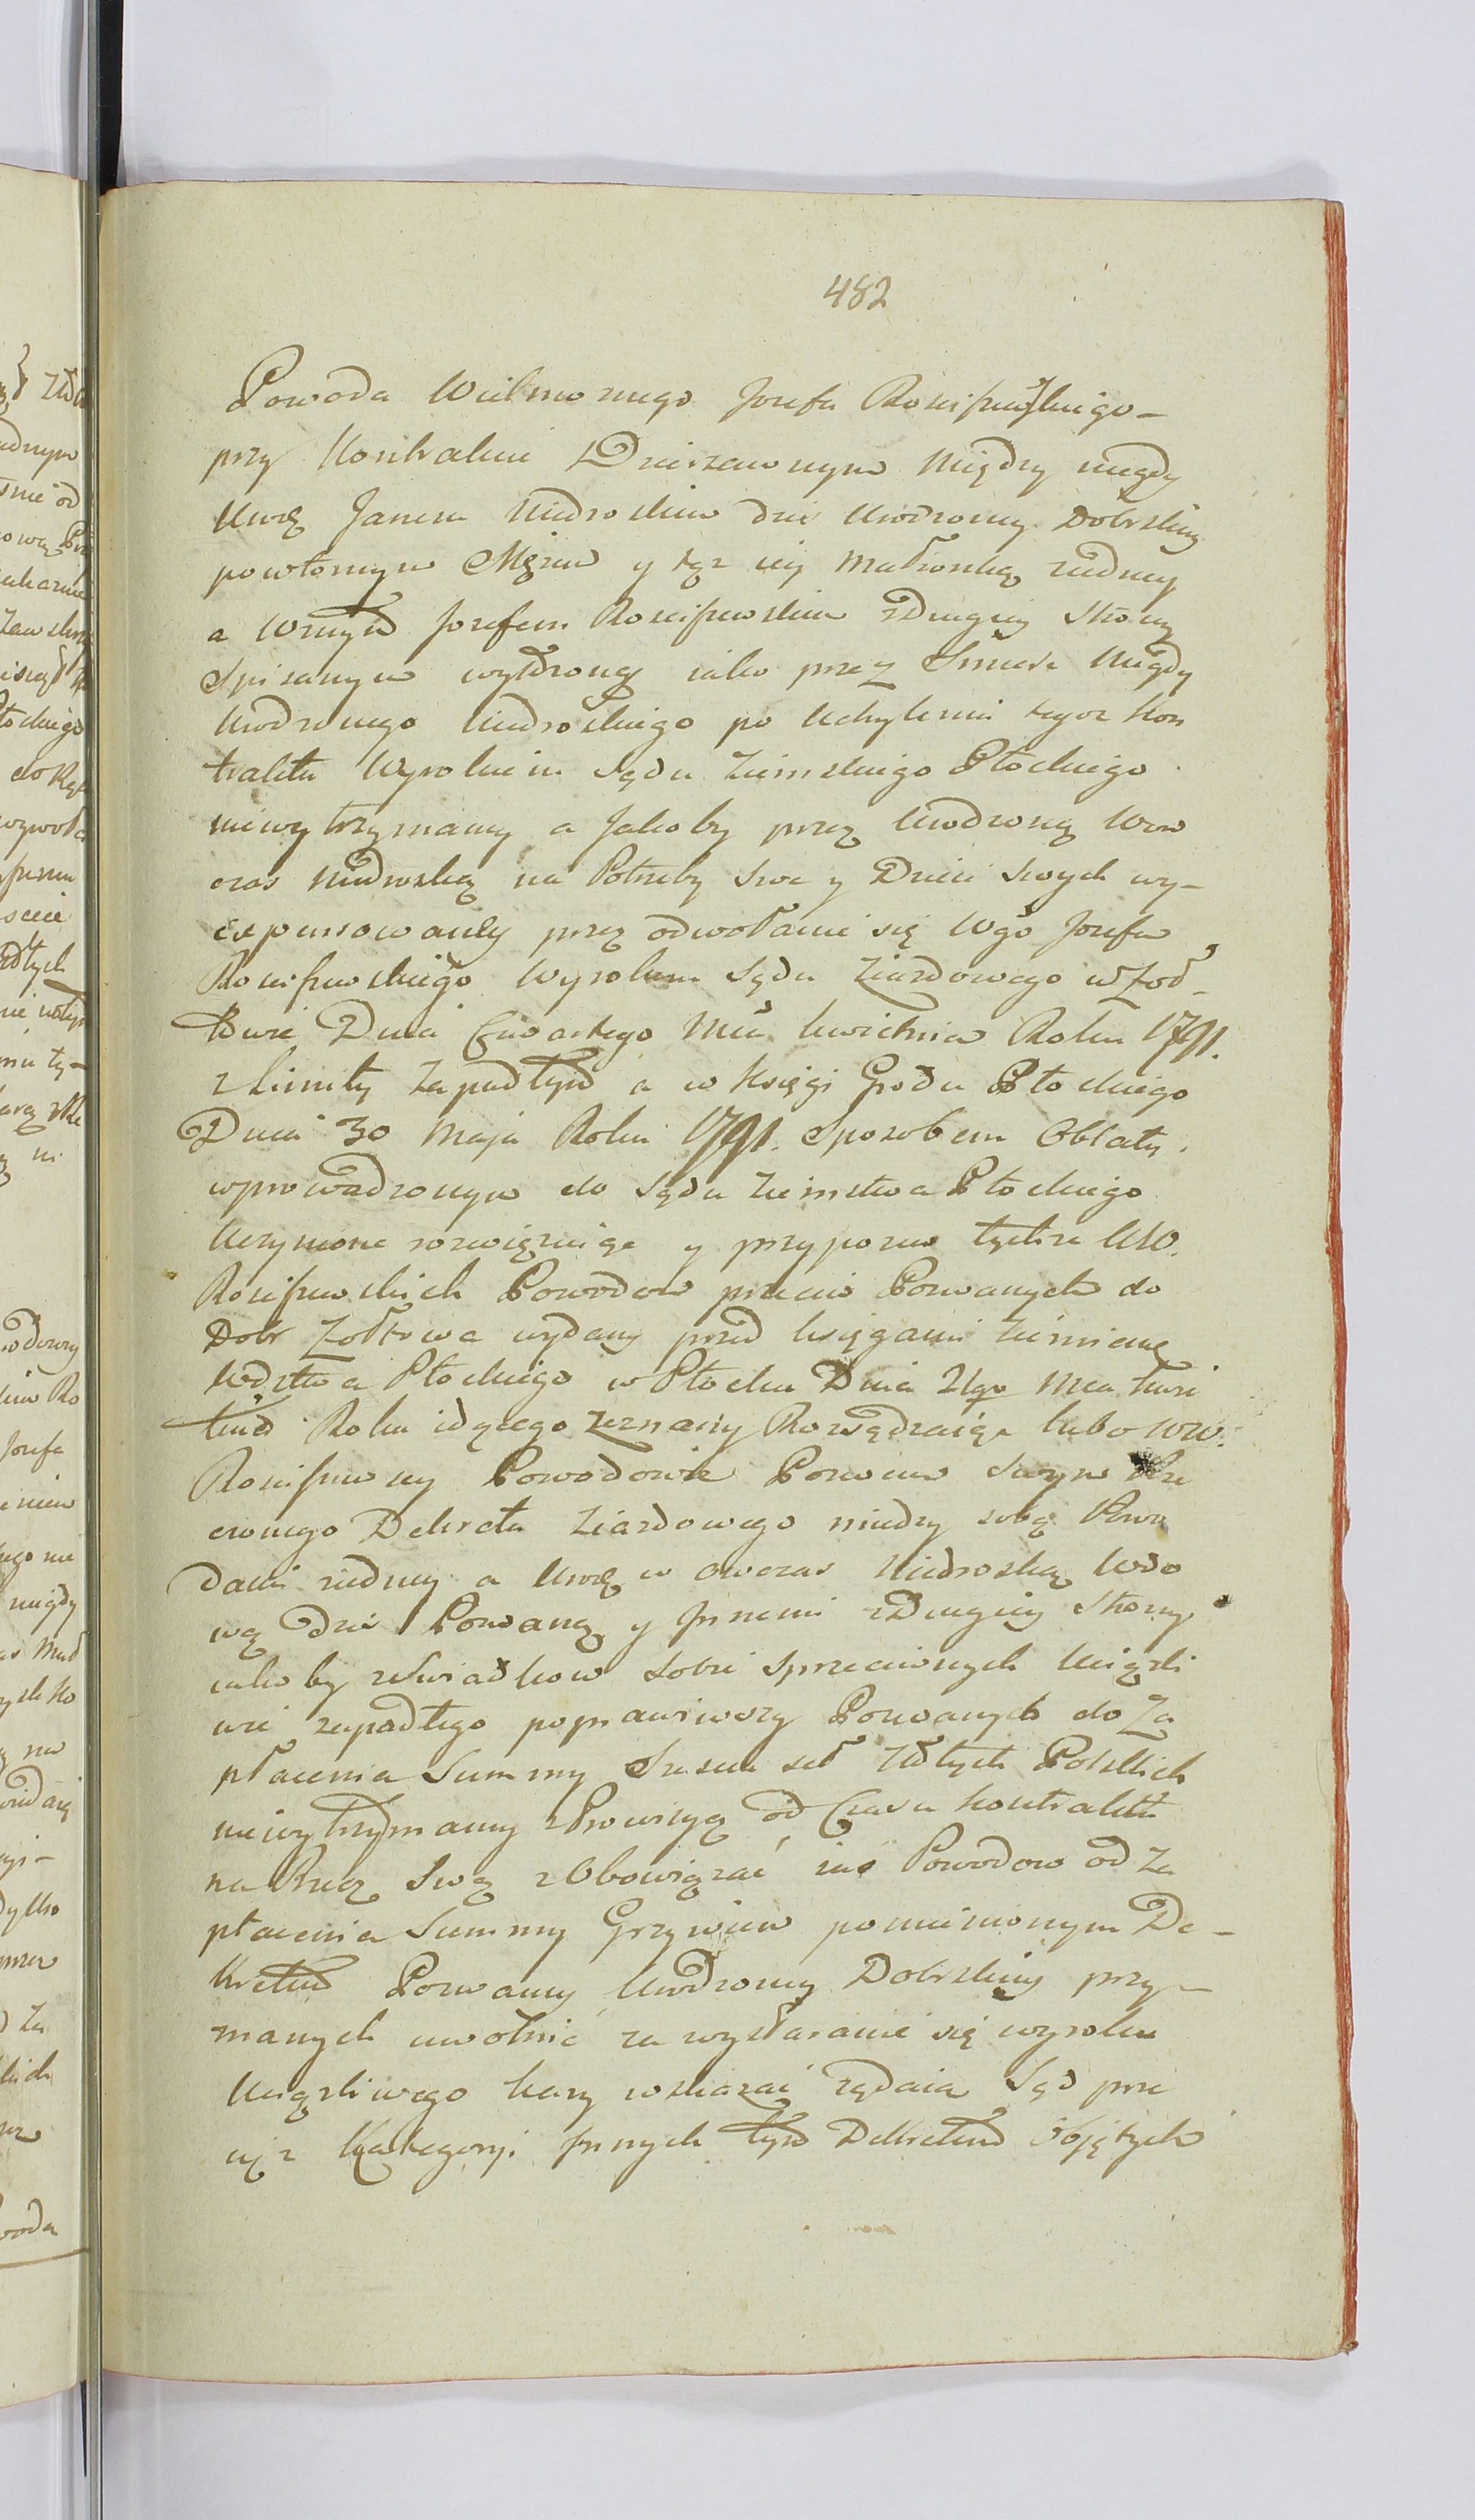 482
Powoda Wielmoznego Jozefa Rosciszewskiego -
przy Kontrakcie Dzierzawnym między niegdy
Urod. Janem Niedroskim dziś Urodzoney Dobrskiey
powtornym Mężem y tęz iey Małżonką z iedney
a Wznym Jozefem Rosciszewskim z Drugiey Strony
Spisanym wytkroną iako przez Smierć Niegdy
Urodzonego Niedroskiego po Uchyleniu tegoz Kon
traktu Wyrokiem Sądu Ziemskiego Płockiego
niewytrzymaney a Jakoby przez Urodzoną Wow
czas Niedroską na Potrzeby Swe y Dzieci swych wy-
expensowaney przez odwołanie się Wgo Jozefa
Rosciszewskiego Wyrokiem Sądu Ziazdowego w Zoł-
towie Dnia Czwartego Mca kwietnia Roku 1791.
z Limity Zapadłym a w Księgi Grodu Płockiego
Dnia 30 Maja Roku 1791. Sposobem Oblaty.
wprowadzonym do Sądu Ziemstwa Płockiego
Uczynione rozwięzuiąc y przypozew tychze UW.
Rosciszewskich Powodow przeciw Pozwanych do
Dobr Zołtowa wydany przed księgami Ziemiane
Wdztwa Płockiego w Płocku Dnia 21go Mca Kwie
tnia Roku idącego zeznany Rozsądzaiąc lubo WW.
Rosciszewscy Powodowie Pozwem swym Prze
ciwnego Dekretu Ziazdowego miedzy sobą Powo
dami z iedney a Urod. w owczas Niedroską Wdo
wą dziś Pozwaną y Innemi z Drugiey Strony
iakoby z Swiadkow Sobie sprzeciwnych Uciązli
wie zapadłego poprawiwszy Pozwanych do Za
płacenia Summy Szesciu set Złłtych Polskich
niewytrzymaney z Prowizyą od Czasu kontraktu
na Rzecz Swą z Obowiązać zas Powodow od Za
płacenia Summy Grzywien pomienionym De-
kretem Pozwaney Urodzoney Dobrskiey przy-
znanych uwolnić za wystaranie się wyroku
Uciązliwego kary wskazać żądaia Sąd prze
cięz Kategoryi Innych tym Dekretem Obiętych